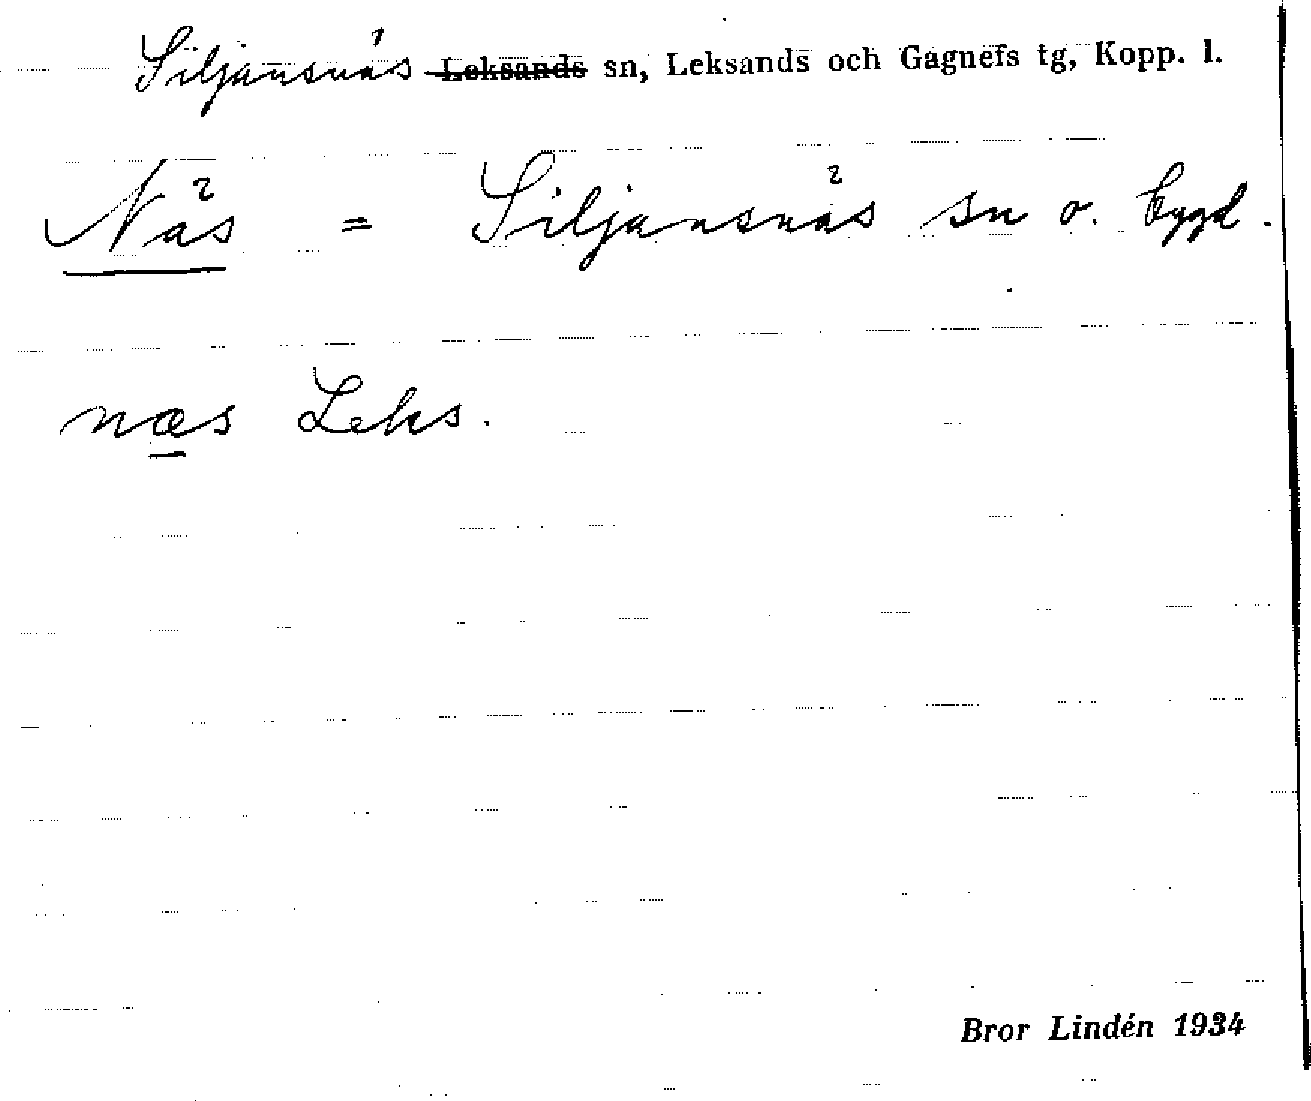 Siljansnäs Leksands sn, Leksands och Gagnefs tg, Kopp. l.
Näs = Siljansnäs sn o. bygd.
næs Leks.
Bror Lindén 1934